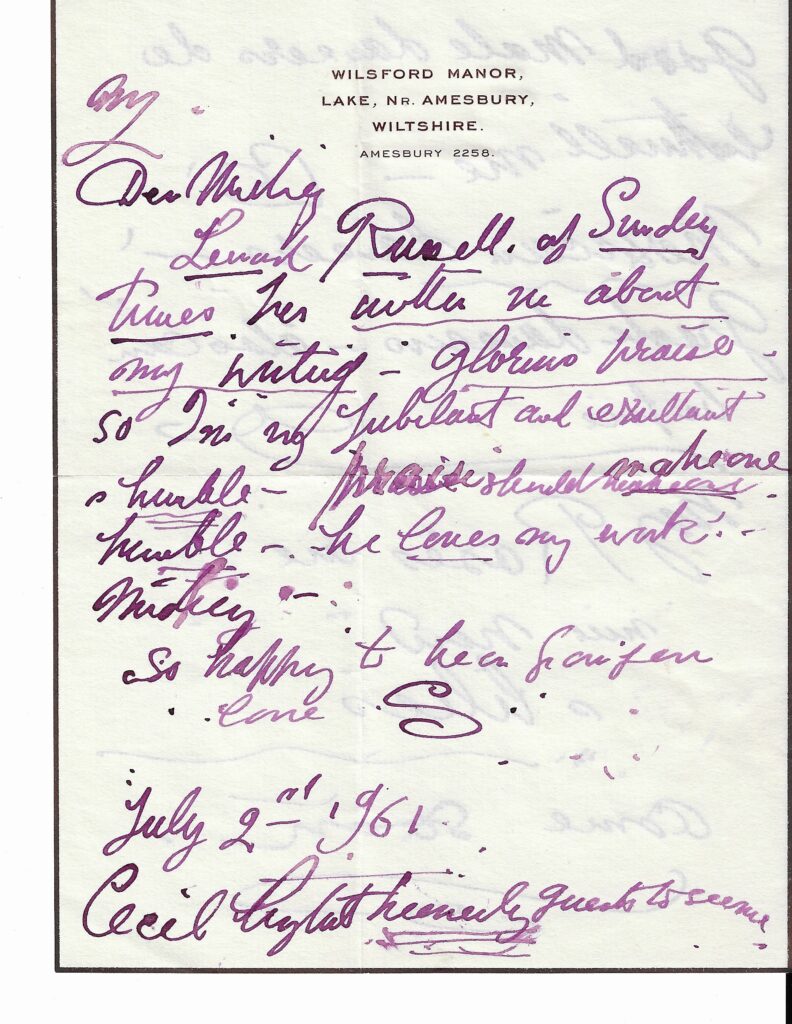 WILSFORD MANOR,
LAKE, NR. AMESBURY,
WILTSHIRE.
AMESBURY 2258.
My
Dear
Russell. of Sunday
times has written me about
my writing - Glorious praise -
so I'm my Jubilant and exultant
humble - praise should make one
humble - he loves my work! -
So happy to hear from you
love S.
July 2nd 1961.
Cecil heavenly guests to see me